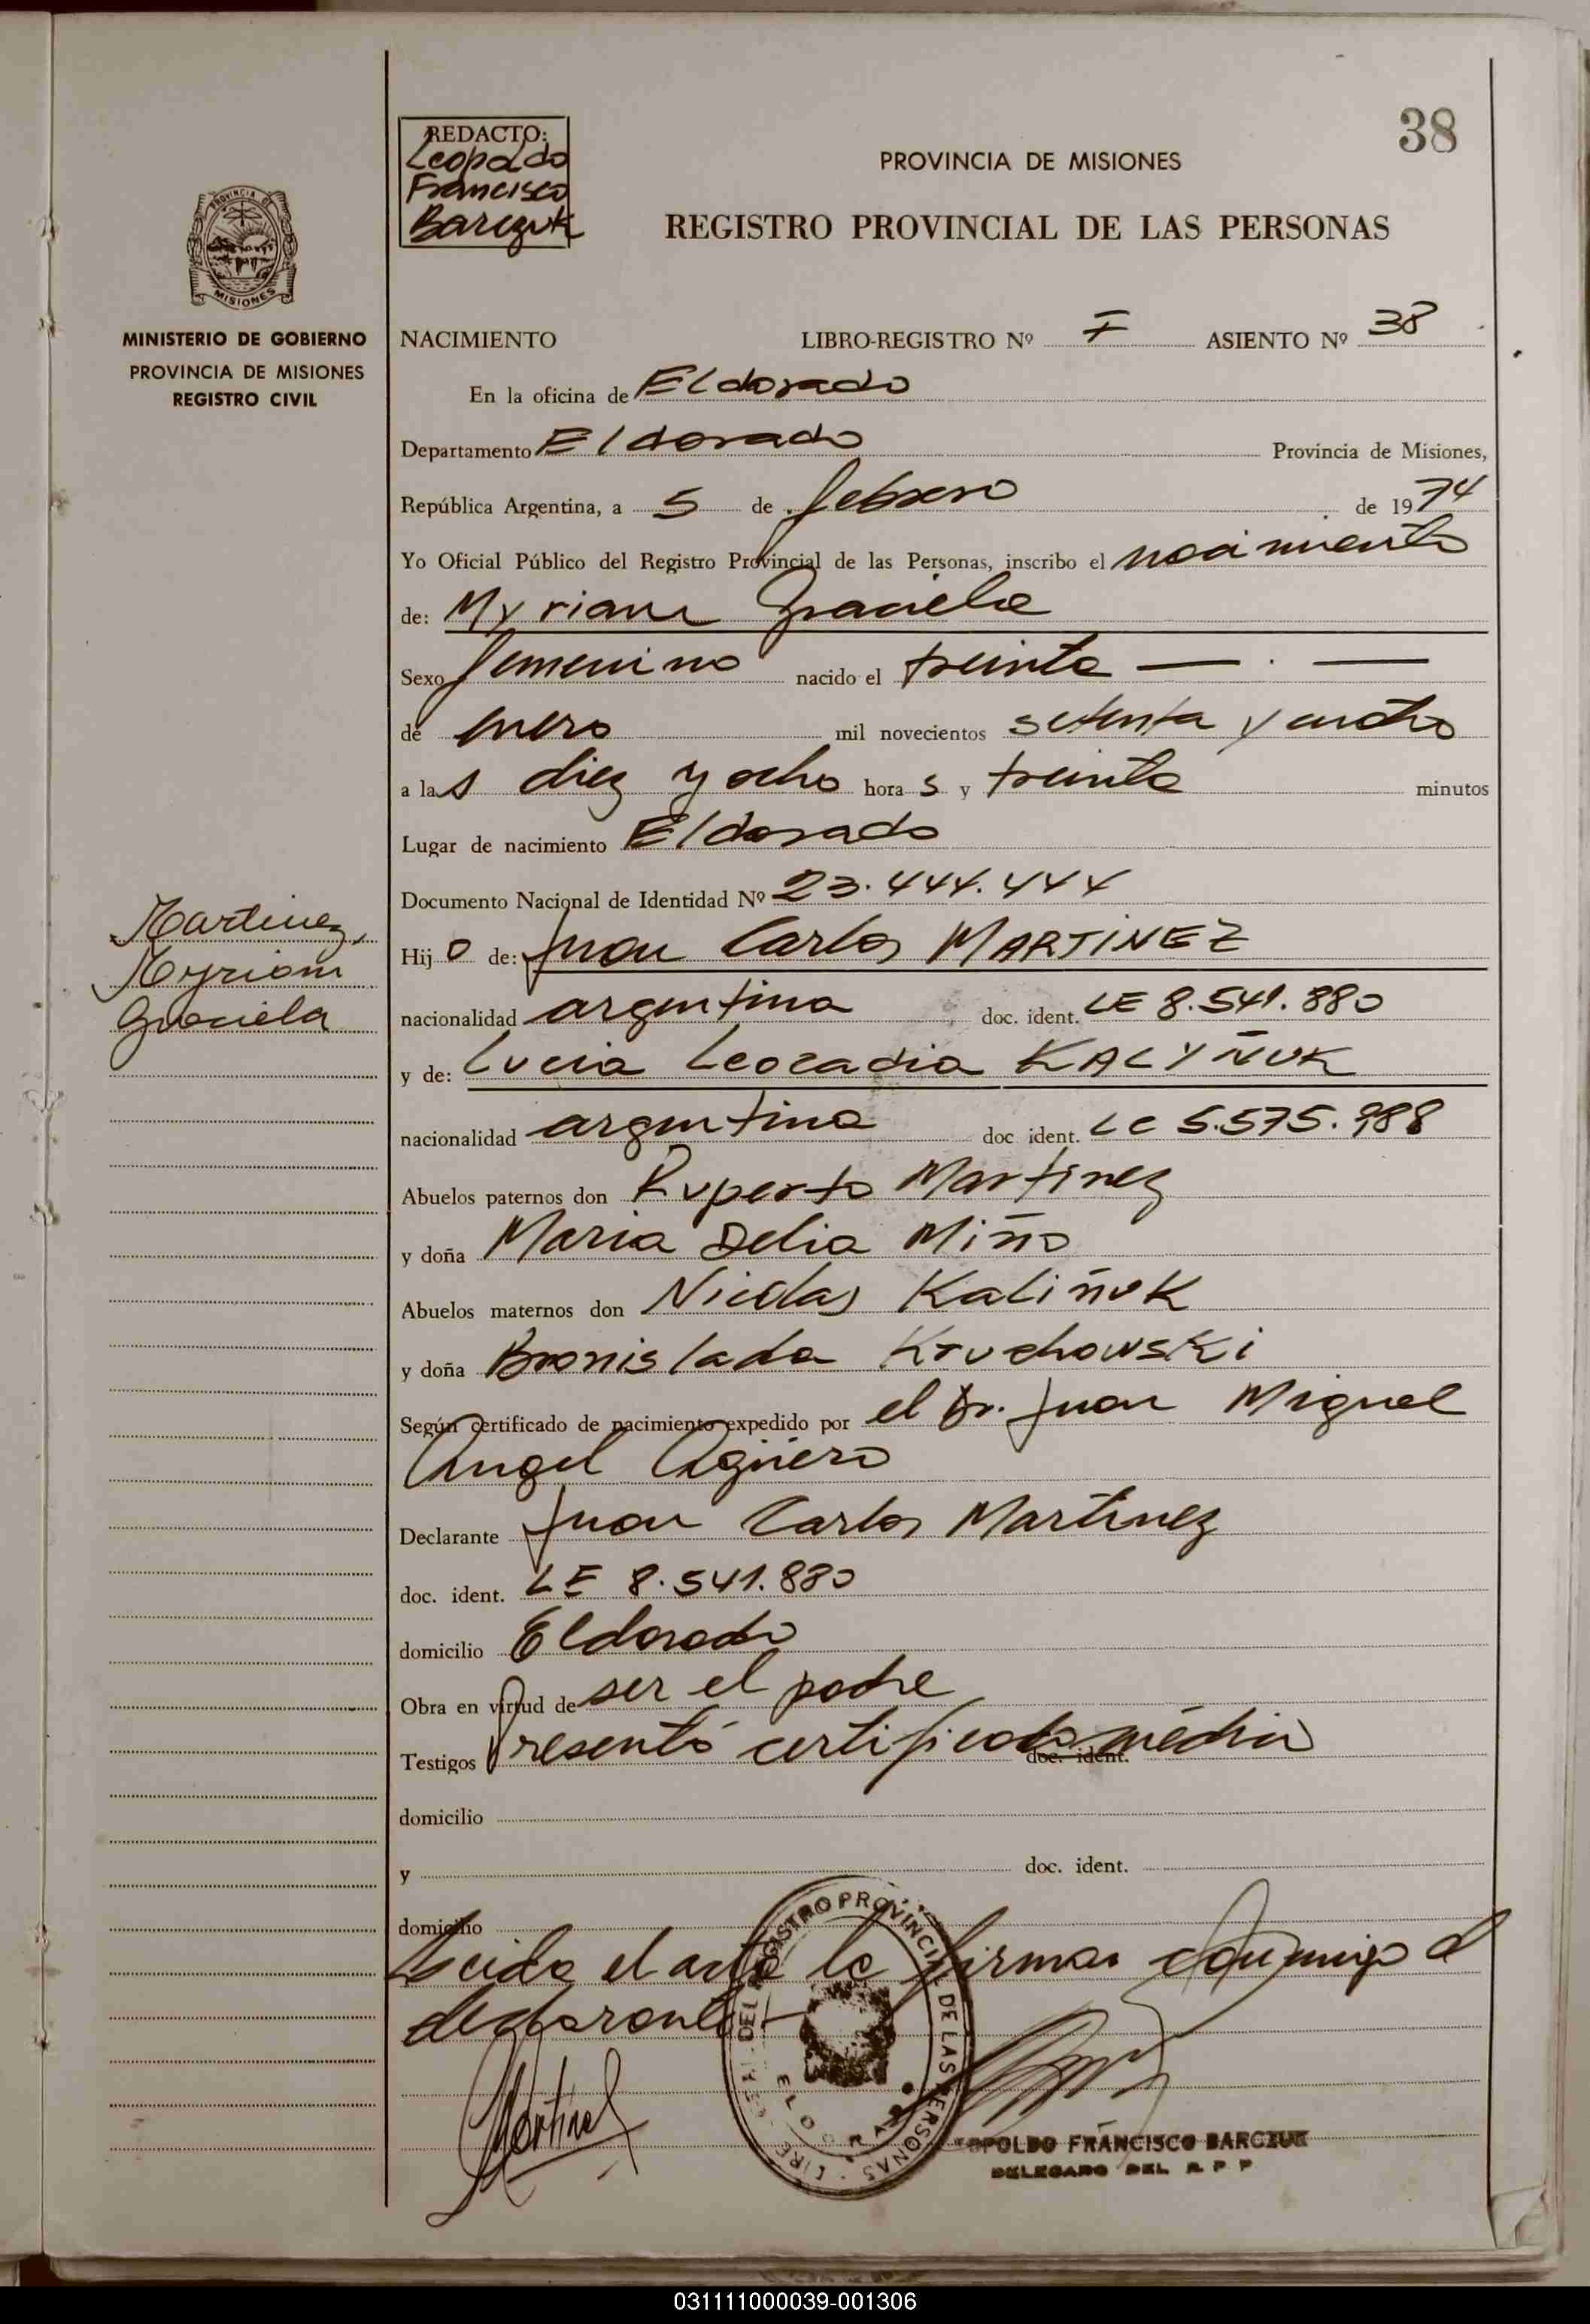 38
REDACTO:
Leopoldo
Francisco
Barczuk
PROVINCIA DE MISIONES
REGISTRO PROVINCIAL DE LAS PERSONAS
PROVINCIA DE
MISIONES
MINISTERIO DE GOBIERNO
PROVINCIA DE MISIONES
REGISTRO CIVIL
NACIMIENTO LIBRO-REGISTRO Nº F ASIENTO Nº 38
En la oficina de Eldorado
Departamento Eldorado Provincia de Misiones,
República Argentina, a 5 de febrero de 1974
Yo Oficial Público del Registro Provincial de las Personas, inscribo el nacimiento
de: Myriam Graciela
Sexo femenino nacido el treinta
de enero mil novecientos setenta y cuatro
a las diez y ocho horas y treinta minutos
Lugar de nacimiento Eldorado
Documento Nacional de Identidad Nº 23.444.444
Martinez,
Myriam
Graciela
Hijo de: Juan Carlos MARTINEZ
nacionalidad argentina doc. ident. LE 8.541.880
y de: Lucia Leocadia KALYÑUK
nacionalidad argentina doc ident. LC 5.575.988
Abuelos paternos don Ruperto Martinez
y doña Maria Delia Miño
Abuelos maternos don Nicolas Kaliñuk
y doña Bronislada Kruchowski
Según certificado de nacimiento expedido por el Dr. Juan Miguel
Angel Agüero
Declarante Juan Carlos Martinez
doc. ident. LE 8.541.880
domicilio Eldorado
Obra en virtud de ser el padre
Testigos Presentó certificado médico doc. ident.
domicilio
y doc. ident.
domicilio
Leida el acta la firma conmigo el
declarante
Martinez
REGISTRO PROVINCIAL DE LAS PERSONAS
ELDORADO
LEOPOLDO FRANCISCO BARCZUK
DELEGADO DEL R P P
031111000039-001306